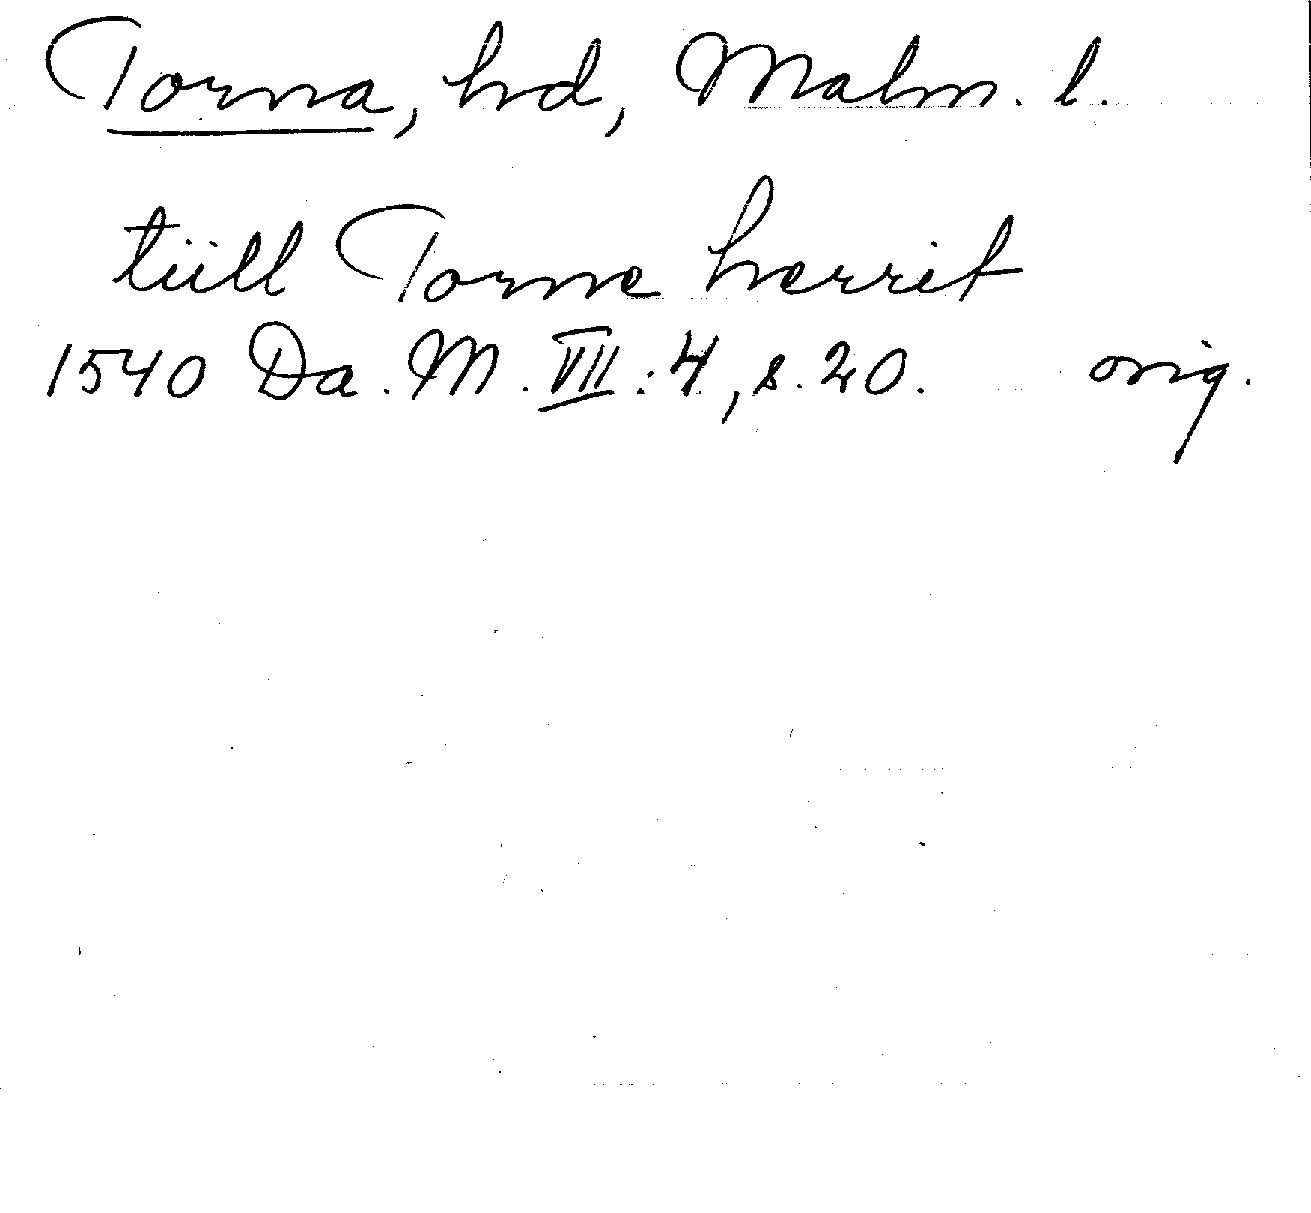 Torna, hd, Malm. l.
tiill Torne herrit
1540 Da. M. VII: 4, s. 20. orig.